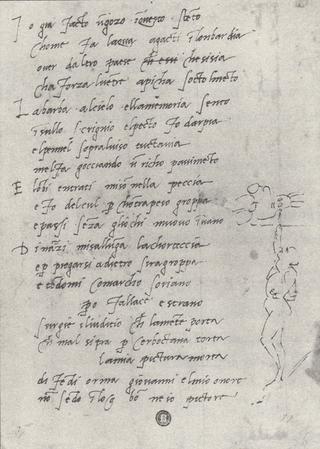 I o gia facto ngozo i questo steto
chome fa lacqua agacti i lombardia
over daltro paese che essi chesisia
cha forza lvetre apicha socto lmeto
L abarba alcielo ellamemoria sento
i sullo scrignio elpecto fo darpia
elpennel sopraluiso tuctavia
melfa gocciando u richo pavimeto
E lobi entrati miso nella peccia
e fo delcul p chotrapeso groppa
e passi seza gliochi muovo i vano
D inazi misalluga lachorteccia
e p piegarsi adietro siragroppa
e tedomi comarcho soriano
po fallace e strano
surgie iliuditio ch lamete porta
ch mal si tra p cerboctana torta
lamia pictura morta
di fedi orma giovanni elmio onore
no sedo i log bo ne io pictore